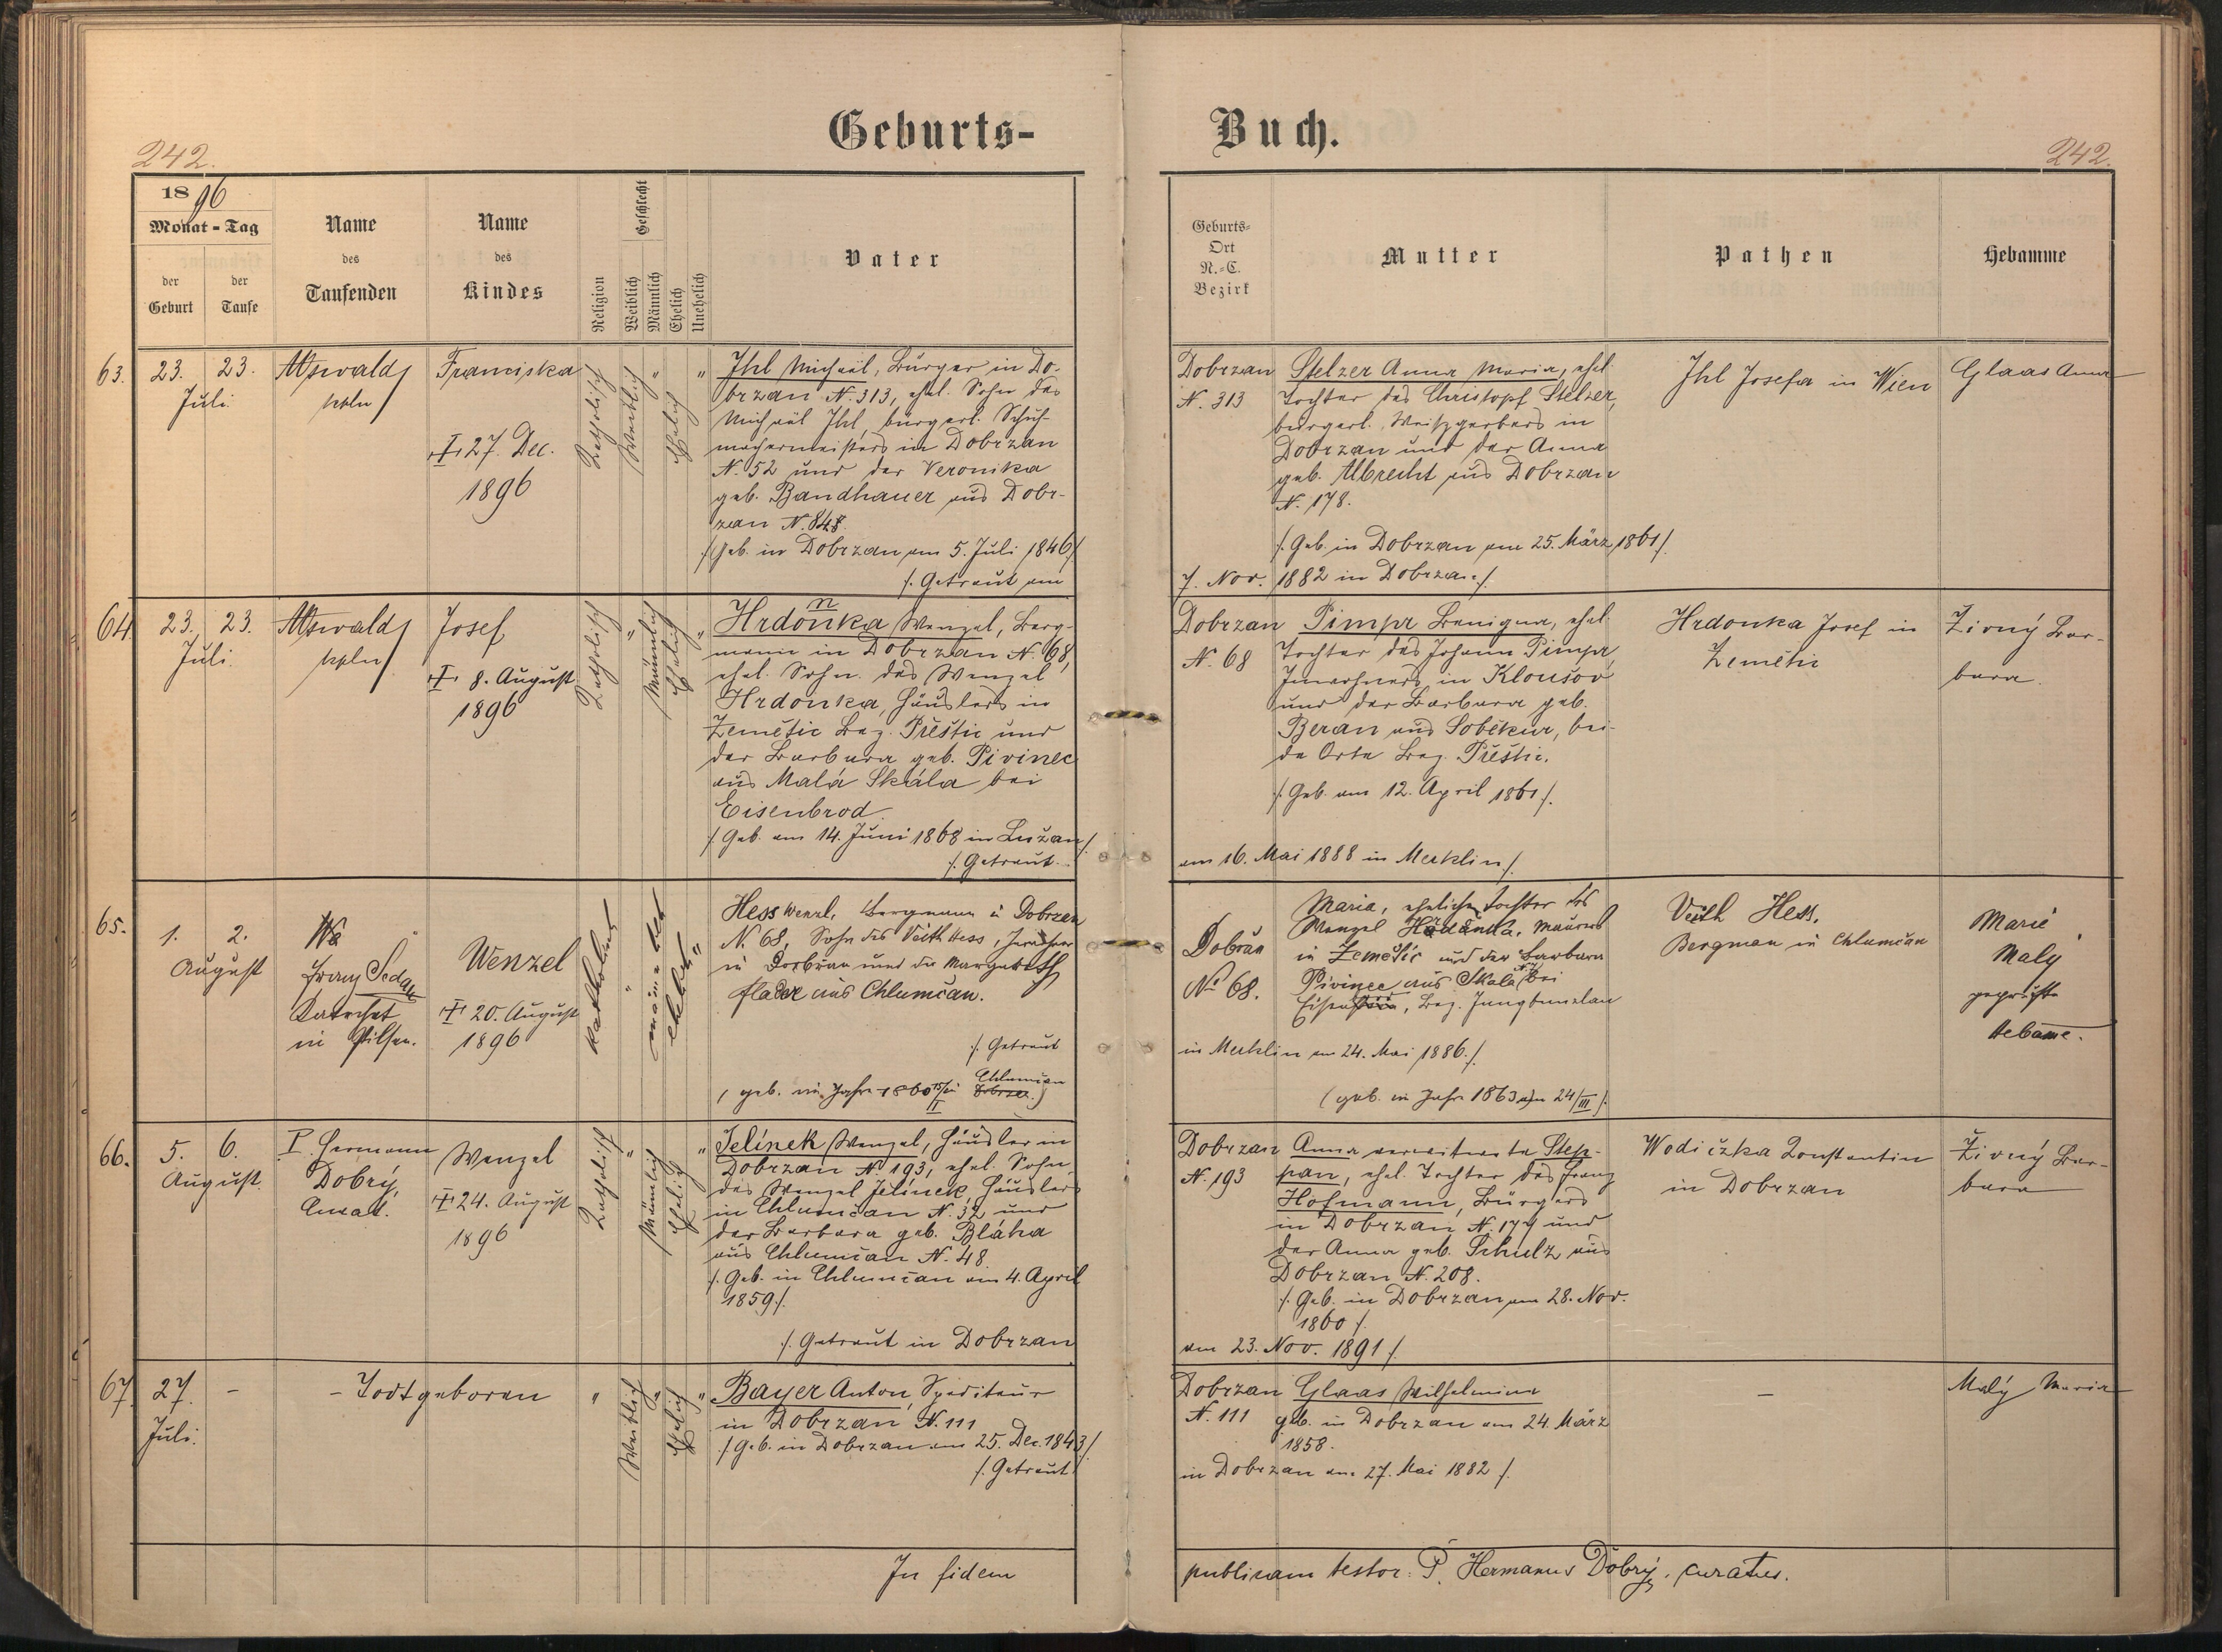 Geburts-
Buch.
242.
242.
1896
Monat - Tag
der Geburt
der Taufe
Name des Taufenden
Name des Kindes
Religion
Geschlecht
Weiblich
Männlich
Ehelich
Unehelich
Vater
Geburts-
Ort
N.-C.
Bezirk
Mutter
Pathen
Hebamme
63.
23.
Juli.
23.
Franciska
27. Dec.
1896
Katholisch
Weiblich
"
Ehelich
"
Ihl Michael, Bürger in Do-
brzan N. 313, ehel. Sohn des
Michael Ihl, bürgerl. Schuh-
machermeisters in Dobrzan
N. 52 und der Veronika
geb. Bandhauer aus Dobr-
zan N. 848.
/. Geb. in Dobrzan am 5. Juli 1846 /.
/. Getraut am
Dobrzan
N. 313
Stelzer Anna Maria, ehel.
Tochter des Christoph Stelzer,
bürgerl. Weißgerbers in
Dobrzan und der Anna
geb. Albrecht aus Dobrzan
N. 178.
/. Geb. in Dobrzan am 25. März 1861 /.
7. Nov. 1882 in Dobrzan /.
Ihl Josefa in Wien
Glaas Anna
64.
23.
Juli.
23.
Josef
8. August
1896
Katholisch
"
Männlich
Ehelich
"
n
Hrdonka Wenzel, Berg-
mann in Dobrzan N. 68,
ehel. Sohn des Wenzel
Hrdonka, Häuslers in
Zemětic Bez. Přeštic und
der Barbara geb. Pivinec
aus Malá Skála bei
Eisenbrod.
/. Geb. am 14. Juni 1868 in Lužan /.
/. Getraut
Dobrzan
N. 68
Pimpr Benigna, ehel.
Tochter des Johann Pimpr,
Inwohners in Kloušov
und der Barbara geb.
Beran aus Soběkur, bei-
de Orte Bez. Přeštic.
/. Geb. am 12. April 1861 /.
am 16. Mai 1888 in Merklin /.
Hrdonka Josef in
Zemětic
Živný Bar-
bara.
65.
1.
August
2.
Franz Sedak
in Pilsen.
Wenzel
20. August
1896
Katholisch
"
ehelich
"
Hess Wenzl, Bergmann in Dobrzan
N. 68, Sohn des Veith Hess,
in Dobřan und der Margareth
flader aus Chlumčan.
/. Getraut
( geb. im Jahre 1860 15/II in Chlumčan )
Dobřan
No 68.
Maria, eheliche Tochter des
Wenzel Hrdonka, Maurers
in Zemětic und der Barbara
Pivinec aus Skala bei
Bez. Jungbunzlau
in Merklin am 24. Mai 1886. /.
( geb. im Jahre 1863 am 24/III ).
Veith Hess,
Bergman in Chlumčan
Marie
Maly
geprüfte
Hebame.
66.
5.
August.
6.
P. Hermann
Dobrý,
Curat.
Wenzel
24. August
1896
Katholisch
"
Männlich
Ehelich
"
Jelínek Wenzel, Häusler in
Dobrzan N. 193, ehel. Sohn
des Wenzel Jelínek, Häuslers
in Chlumčan N. 32 und
der Barbara geb. Bláha
aus Chlumčan N. 48.
/. Geb. in Chlumčan am 4. April
1859 /.
/. Getraut in Dobrzan
Dobrzan
N. 193
Anna verwitwete Step-
pan, ehel. Tochter des Franz
Hofmann, Bürgers
in Dobrzan N. 177 und
der Anna geb. Schulz aus
Dobrzan N. 208.
/. Geb. in Dobrzan am 28. Nov.
1860 /.
am 23. Nov. 1891 /.
Wodiczka Konstantin
in Dobrzan
Živný Bar-
bara
67.
27.
Juli.
-
- Todtgeboren
"
Weiblich
"
Ehelich
"
Bayer Anton, Spediteur
in Dobrzan N. 111
/. Geb. in Dobrzan am 25. Dec. 1843 /.
/. Getraut
Dobrzan
N. 111
Glaas Wilhelmine
geb. in Dobrzan am 24. März
1858.
in Dobrzan am 27. Mai 1882 /.
-
Malý Maria
In fidem
publicam testor: P. Hermanus Dobrý, curatus.